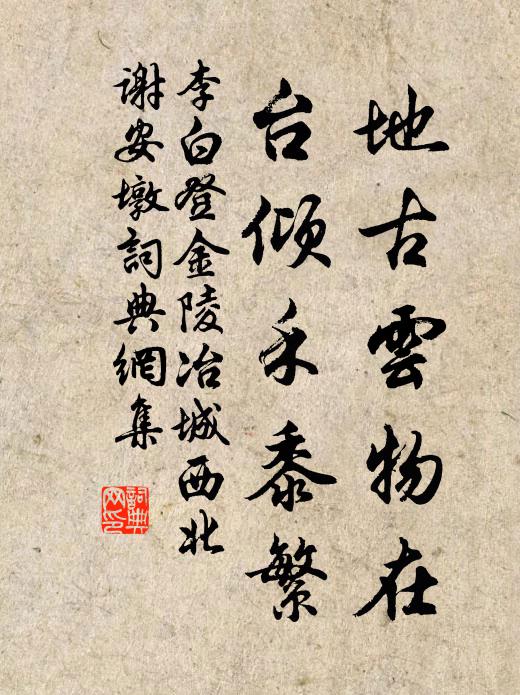 地古雲物在
台傾禾黍繁
李白登金陵冶城西北
谢安墩詞典網集
詞典
网印